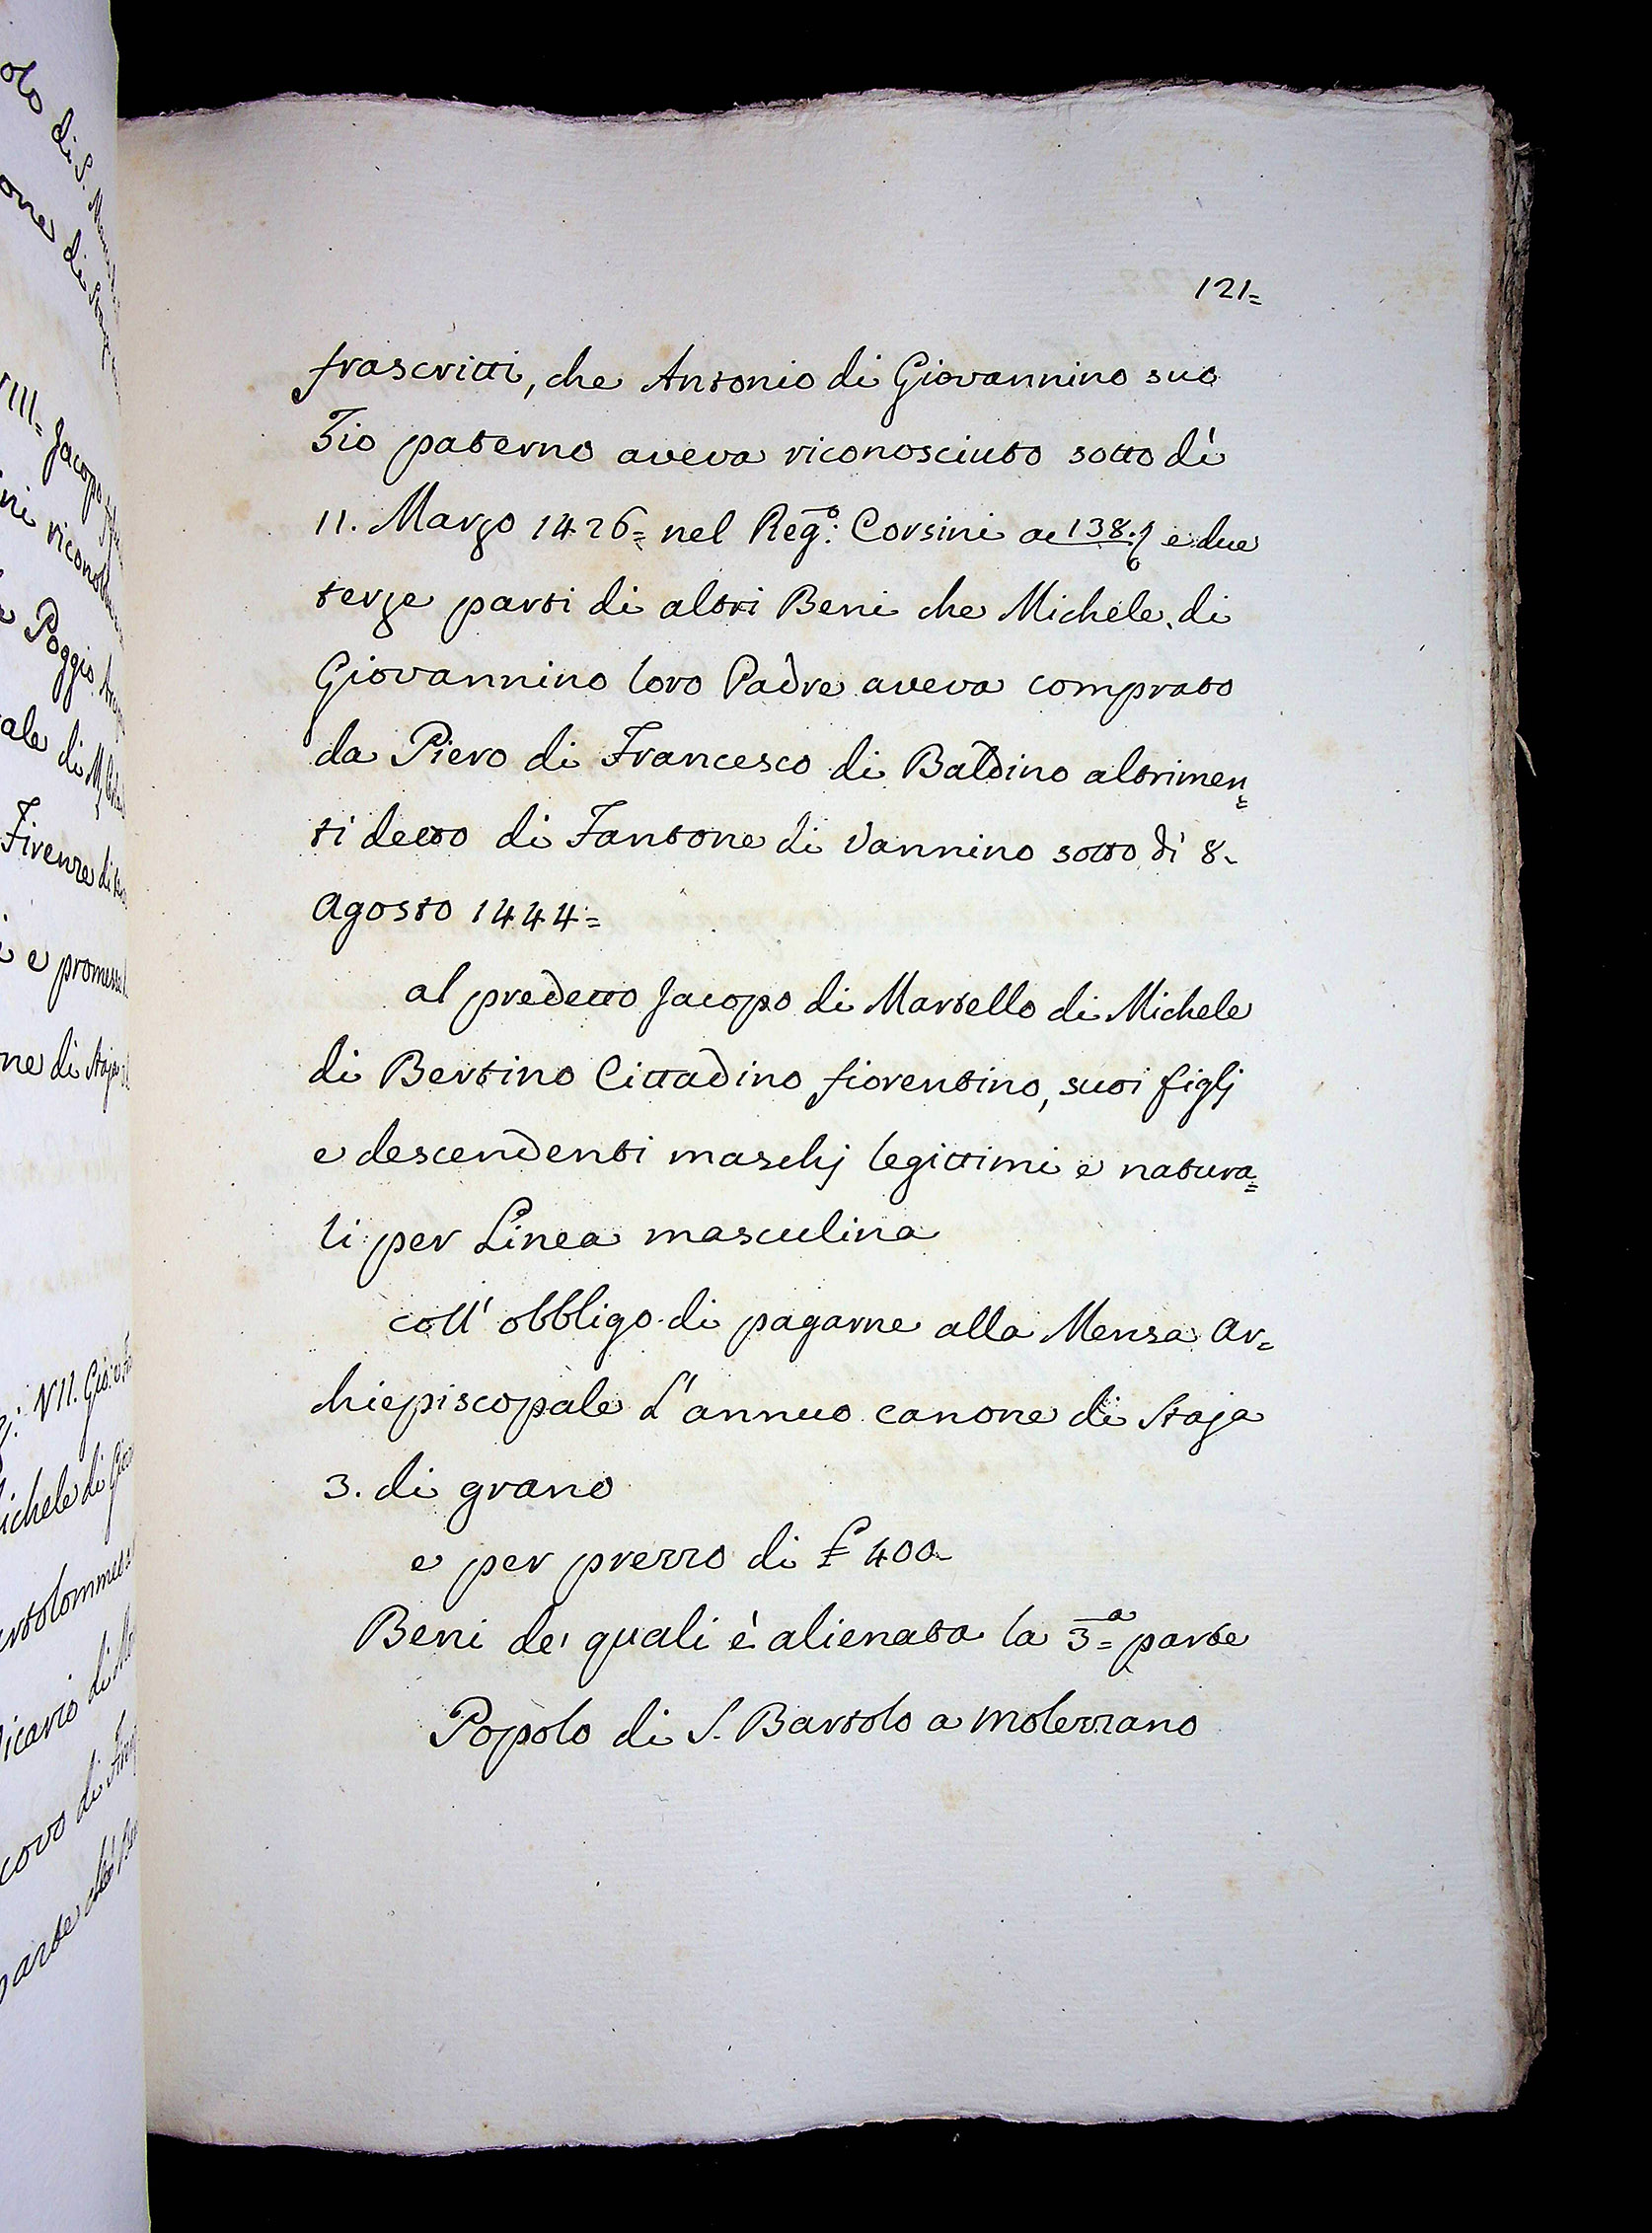 olo di S.
one di
VIII= Jacopo
ni
Poggio
ale di
Firenze di
i e
ne di Staja
VII. Gio:
ichele di
artolommeo
icario di
covo di
parte
121=
frascritti, che Antonio di Giovannino suo
Zio paterno aveva riconosciuto sotto dì
11. Marzo 1426= nel Reg.º: Corsini a 138. e due
terze parti di altri Beni che Michele di
Giovannino loro Padre aveva comprato
da Piero di Francesco di Baldino altrimen=
ti detto di Fantone di Vannino sotto dì 8.
Agosto 1444=
al predetto Jacopo di Martello di Michele
di Bertino Cittadino fiorentino, suoi figlj
e descendenti maschj legittimi e natura=
li per Linea masculina
coll' obbligo di pagarne alla Mensa Ar=
chiepiscopale L'annuo canone di Staja
3. di grano
e per prezzo di £ 400-
Beni de' quali è alienata la 3=ª parte
Popolo di S. Bartolo a Molezzano